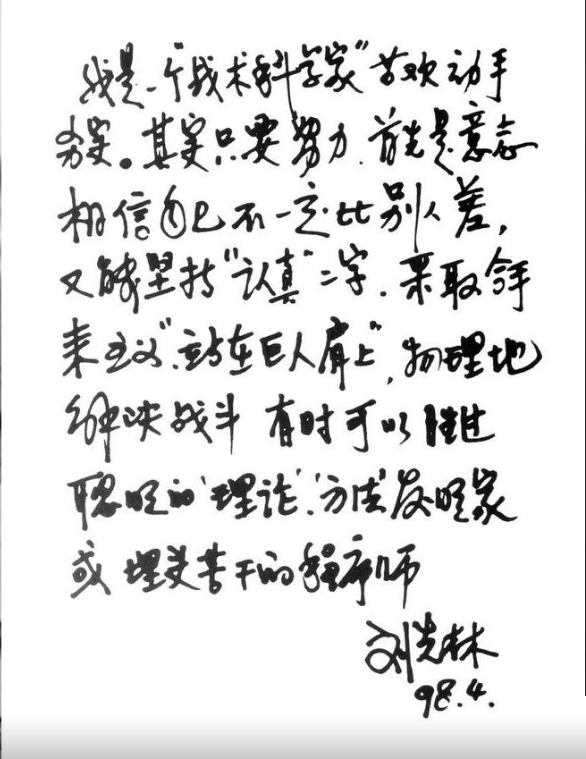 我是一个"战术科学家"喜欢动手
实。其实只要努力、首先是意志
相信自己不一定比别人差,
又能坚持"认真"二字、采取拿
来主义"站在巨人肩上",物理地
解决战斗 有时可以胜过
聪明的'理论'、'方法'发明家
或埋头苦干的程序师
刘先林
98.4.